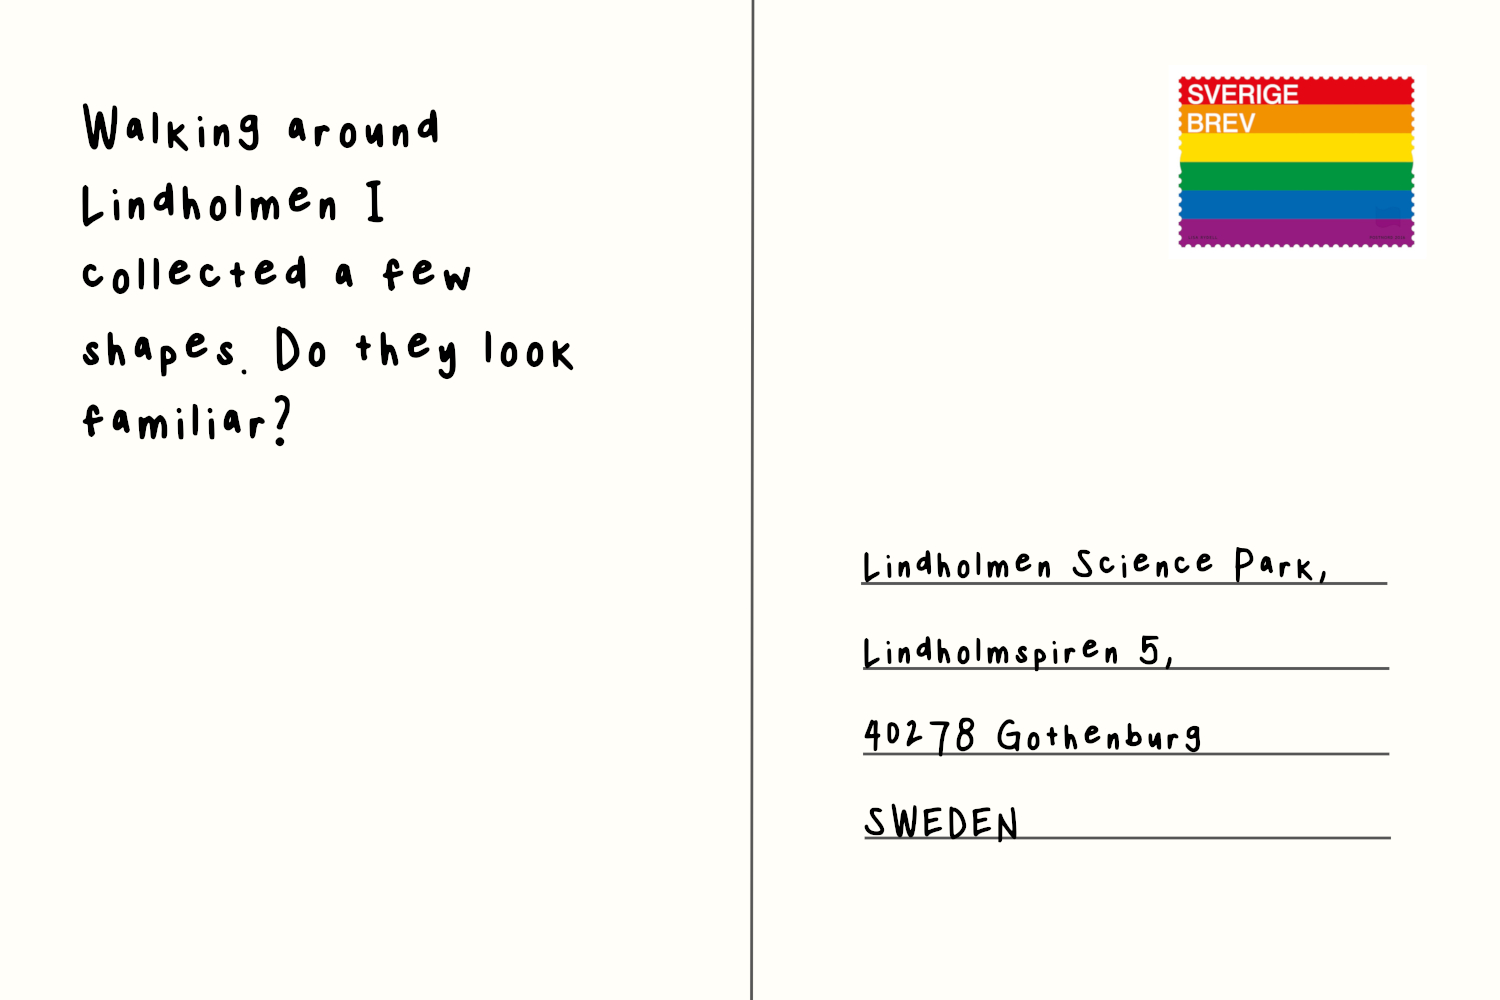 Walking around
Lindholmen I
collected a few
shapes. Do they look
familiar?
SVERIGE
BREV
Lindholmen Science Park,
Lindholmspiren 5,
40278 Gothenburg
SWEDEN